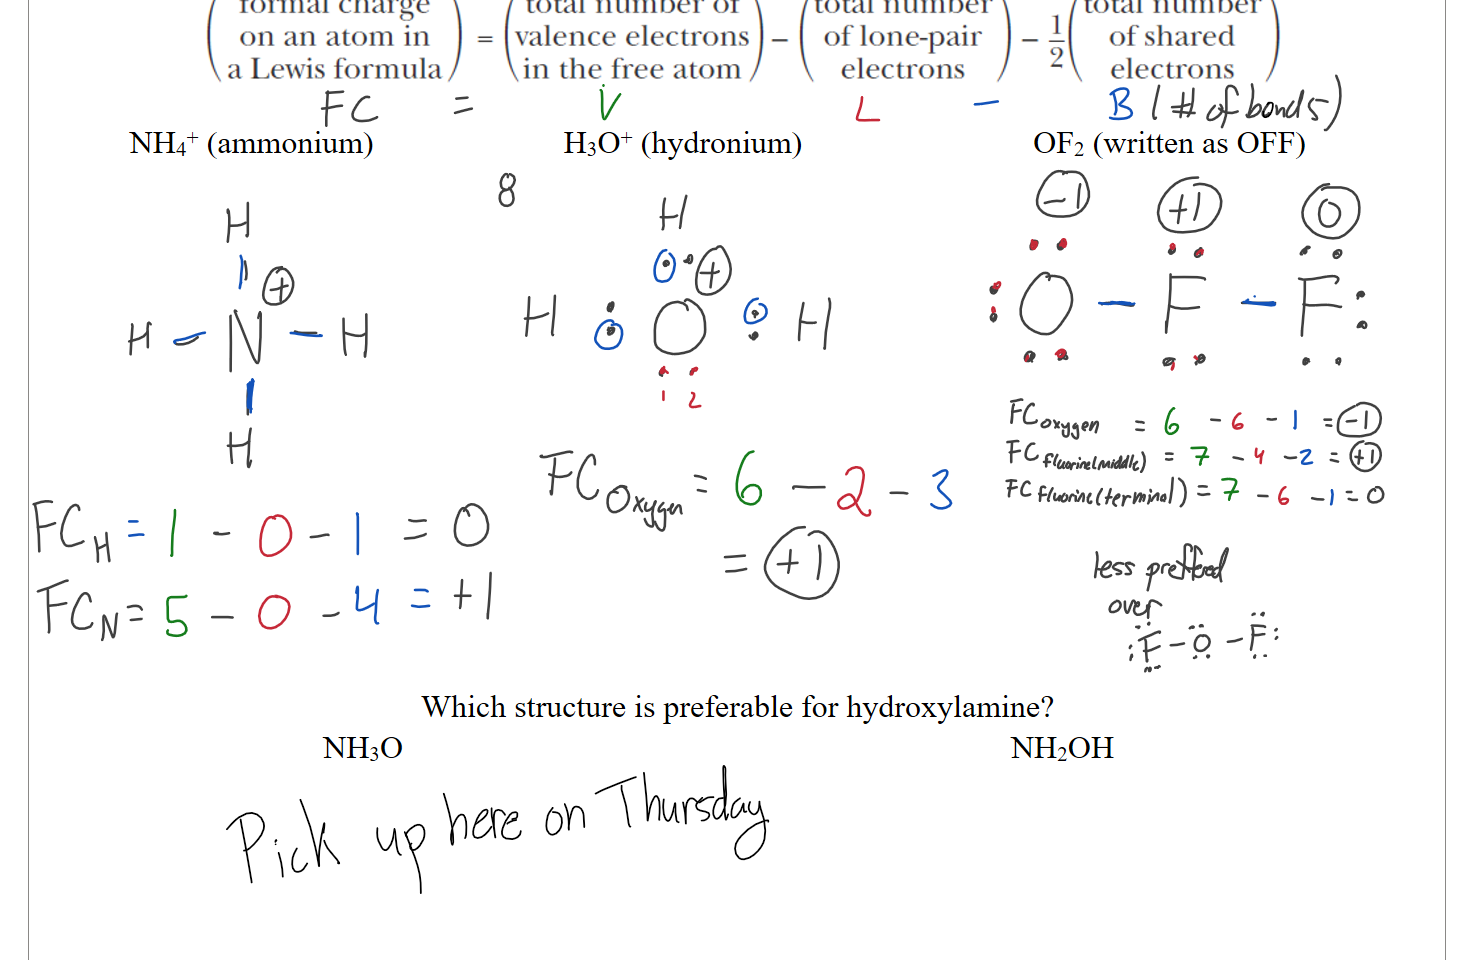 formal charge on an atom in a Lewis formula = total number of valence electrons in the free atom − total number of lone-pair electrons − 1/2 total number of shared electrons
FC = V L − B (# of bonds)
NH₄⁺ (ammonium)
H
H − N − H
⊕
H
FC_H = 1 − 0 − 1 = 0
FC_N = 5 − 0 − 4 = +1
H₃O⁺ (hydronium)
8
H
⊕
H O H
1 2
FC_Oxygen = 6 − 2 − 3
= +1
OF₂ (written as OFF)
−1 +1 0
O − F − F
FC_oxygen = 6 − 6 − 1 = −1
FC_fluorine(middle) = 7 − 4 − 2 = +1
FC_fluorine(terminal) = 7 − 6 − 1 = 0
less preffered
over
F − O − F
Which structure is preferable for hydroxylamine?
NH₃O
NH₂OH
Pick up here on Thursday